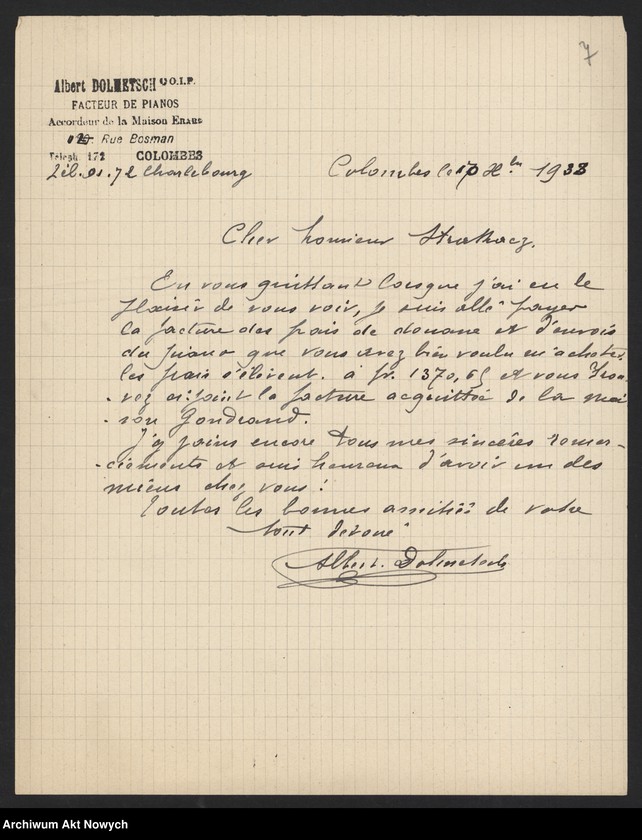 7
Albert DOLMETSCH O.I.P.
FACTEUR DE PIANOS
Accordeur de la Maison ERARD
Rue Bosman
Téleph. 172 COLOMBES
Tél. 01.72 Charlebourg
Colombes le 10 Xbre 1938
Cher monsieur Strakacz.
En vous quittant lorsque j'ai eu le
plaisir de vous voir, je suis allé payer
la facture des frais de douane et d'envois
du piano que vous avez bien voulu m'acheter.
les frais s'élèvent. à fr. 1370,65 et vous trou-
-vez ci-joint la facture acquittée de la mai
-son Gondrand.
J'y joins encore tous mes sincères remer-
-ciements et suis heureux d'avoir un des
miens chez vous !
Toutes les bonnes amitiés de votre
tout dévoué
Albert. Dolmetsch
Archiwum Akt Nowych